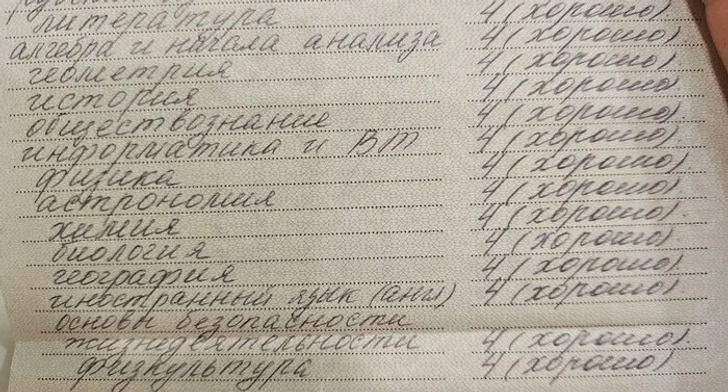 литература 4 (хорошо)
алгебра и начала анализа 4 (хорошо)
геометрия 4 (хорошо)
история 4 (хорошо)
обществознание 4 (хорошо)
информатика и ВТ 4 (хорошо)
физика 4 (хорошо)
астрономия 4 (хорошо)
химия 4 (хорошо)
биология 4 (хорошо)
география 4 (хорошо)
иностранный язык (англ) 4 (хорошо)
основы безопасности
жизнедеятельности 4 (хорошо)
физкультура 4 (хорошо)